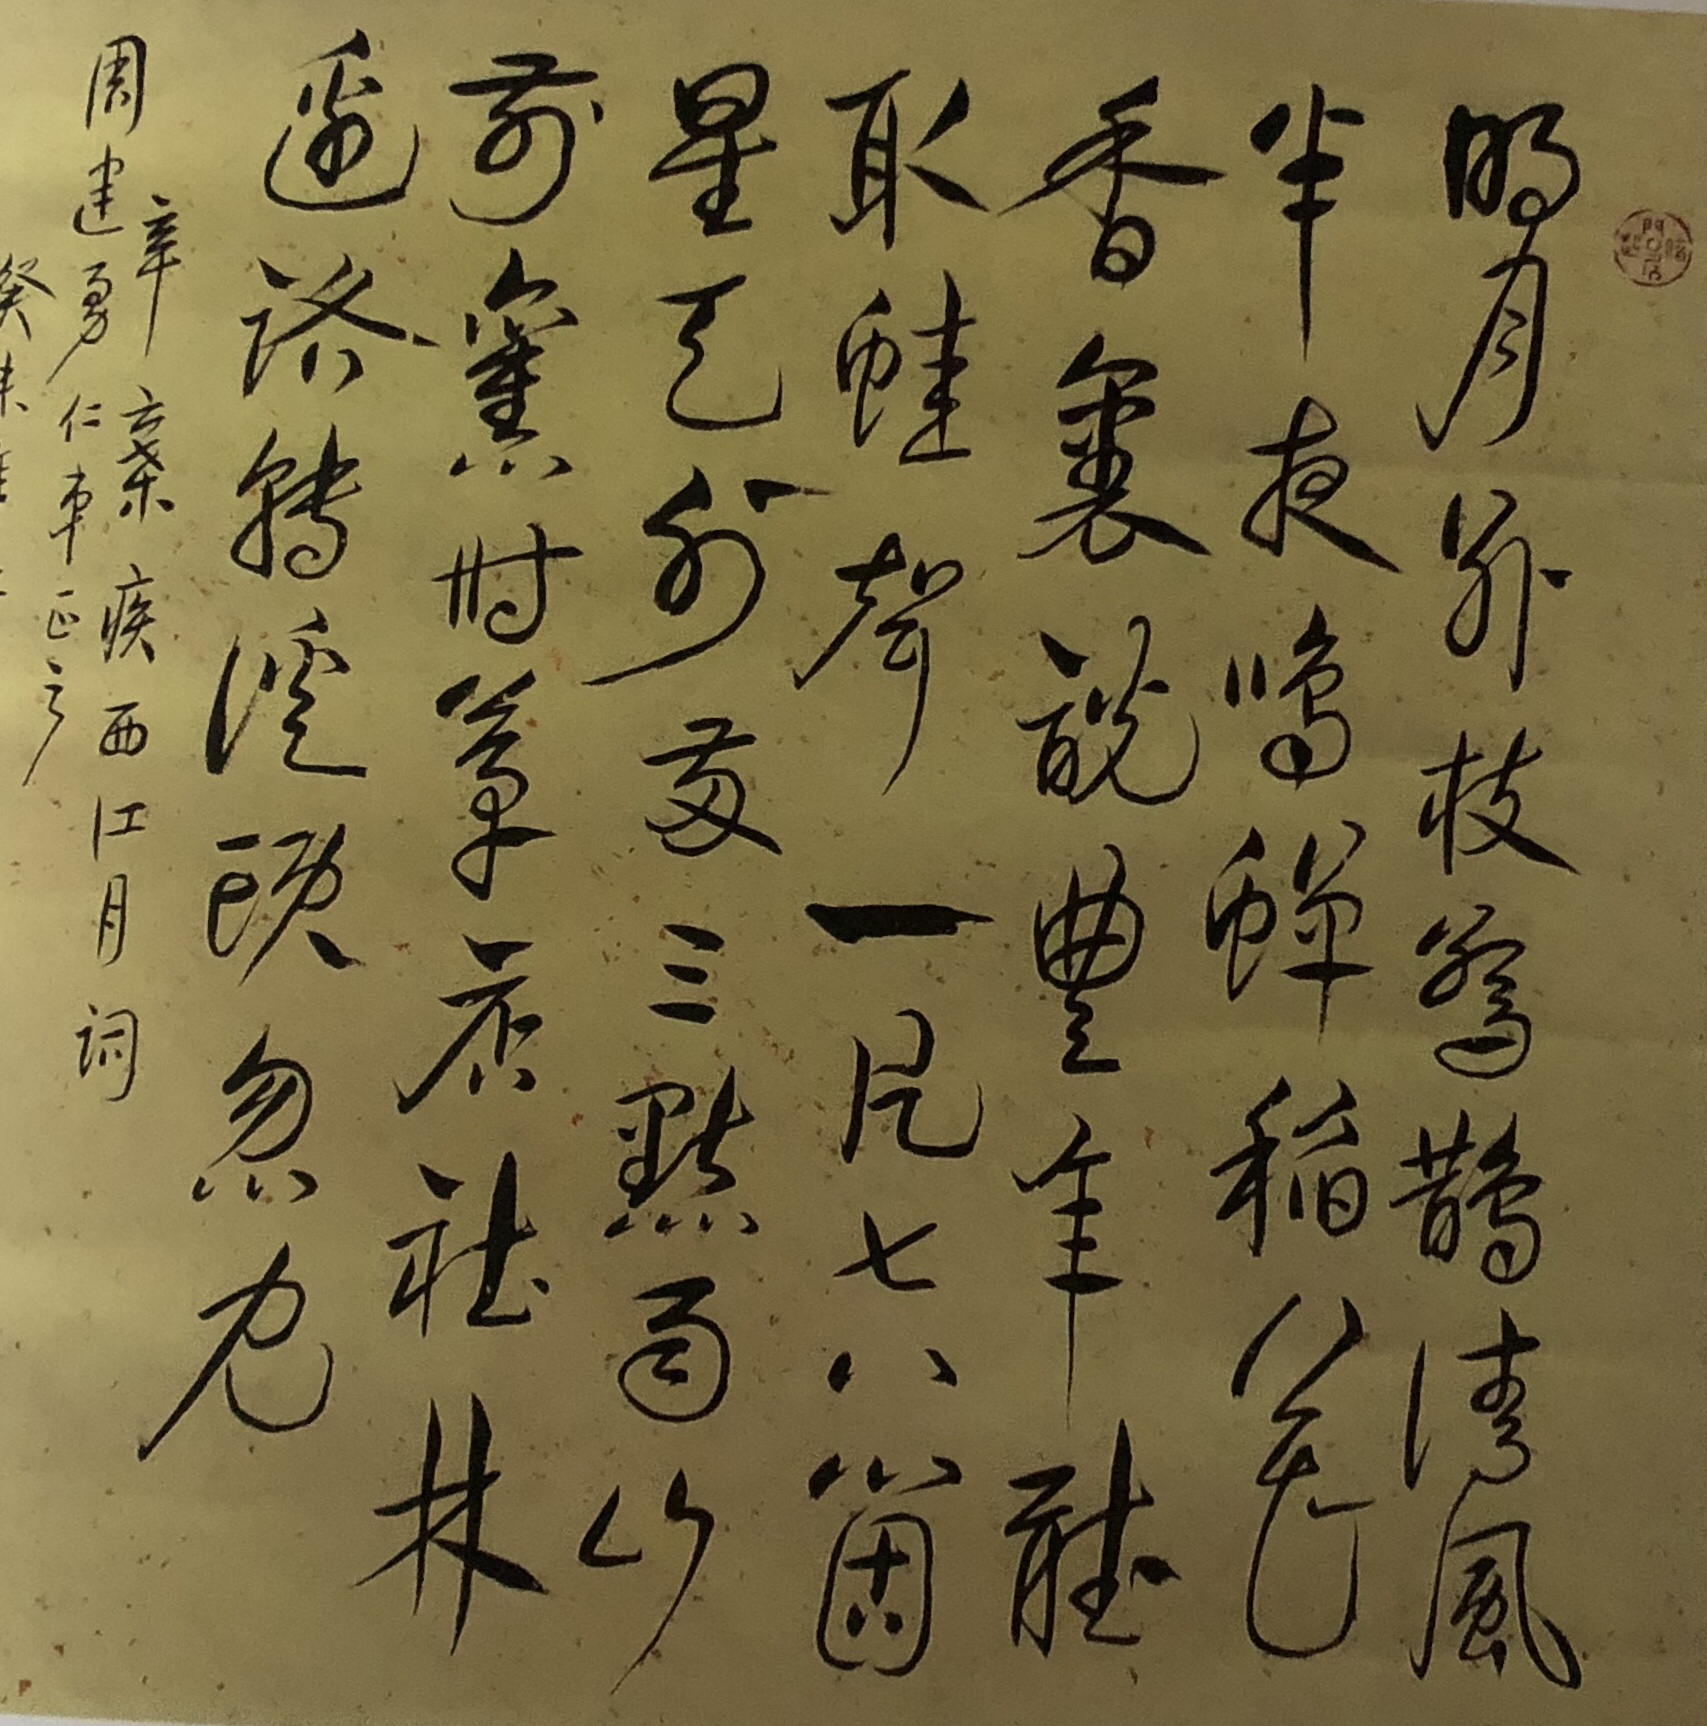 明月別枝驚鵲清風
半夜鳴蟬稻花
香裏說豐年聽
取蛙聲一片七八箇
星天外兩三點雨山
前舊時茅店社林
邊路轉溪頭忽見
辛棄疾西江月詞
周建勇仁弟正之
癸未